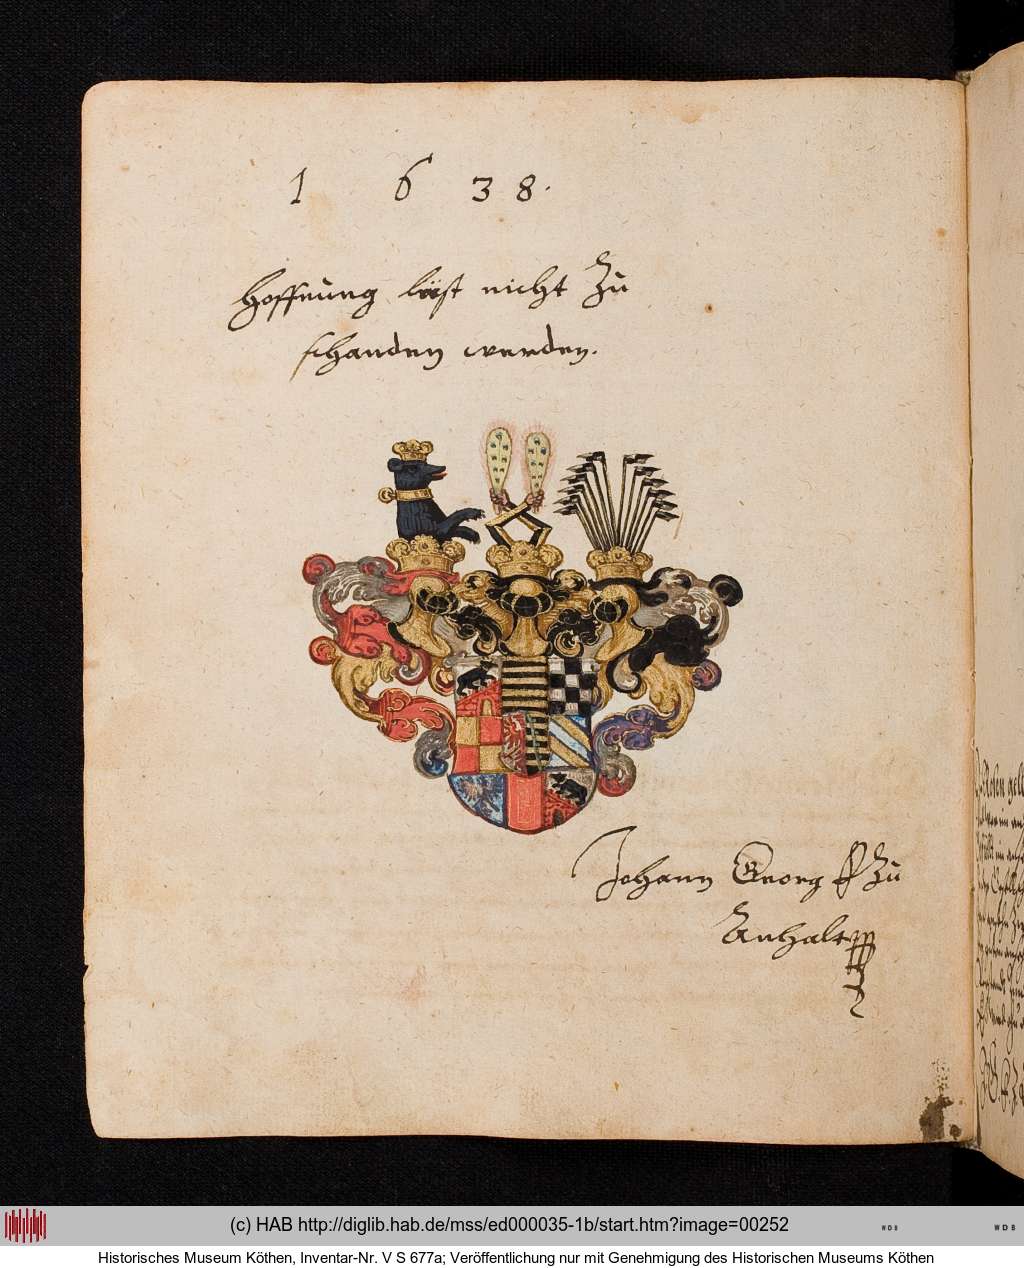 1 6 38.
Hoffnung läst nicht zu
schanden werden.
Johann Georg F zu
Anhalt
WDB
WDB
(c) HAB http://diglib.hab.de/mss/ed000035-1b/start.htm?image=00252
Historisches Museum Köthen, Inventar-Nr. V S 677a; Veröffentlichung nur mit Genehmigung des Historischen Museums Köthen